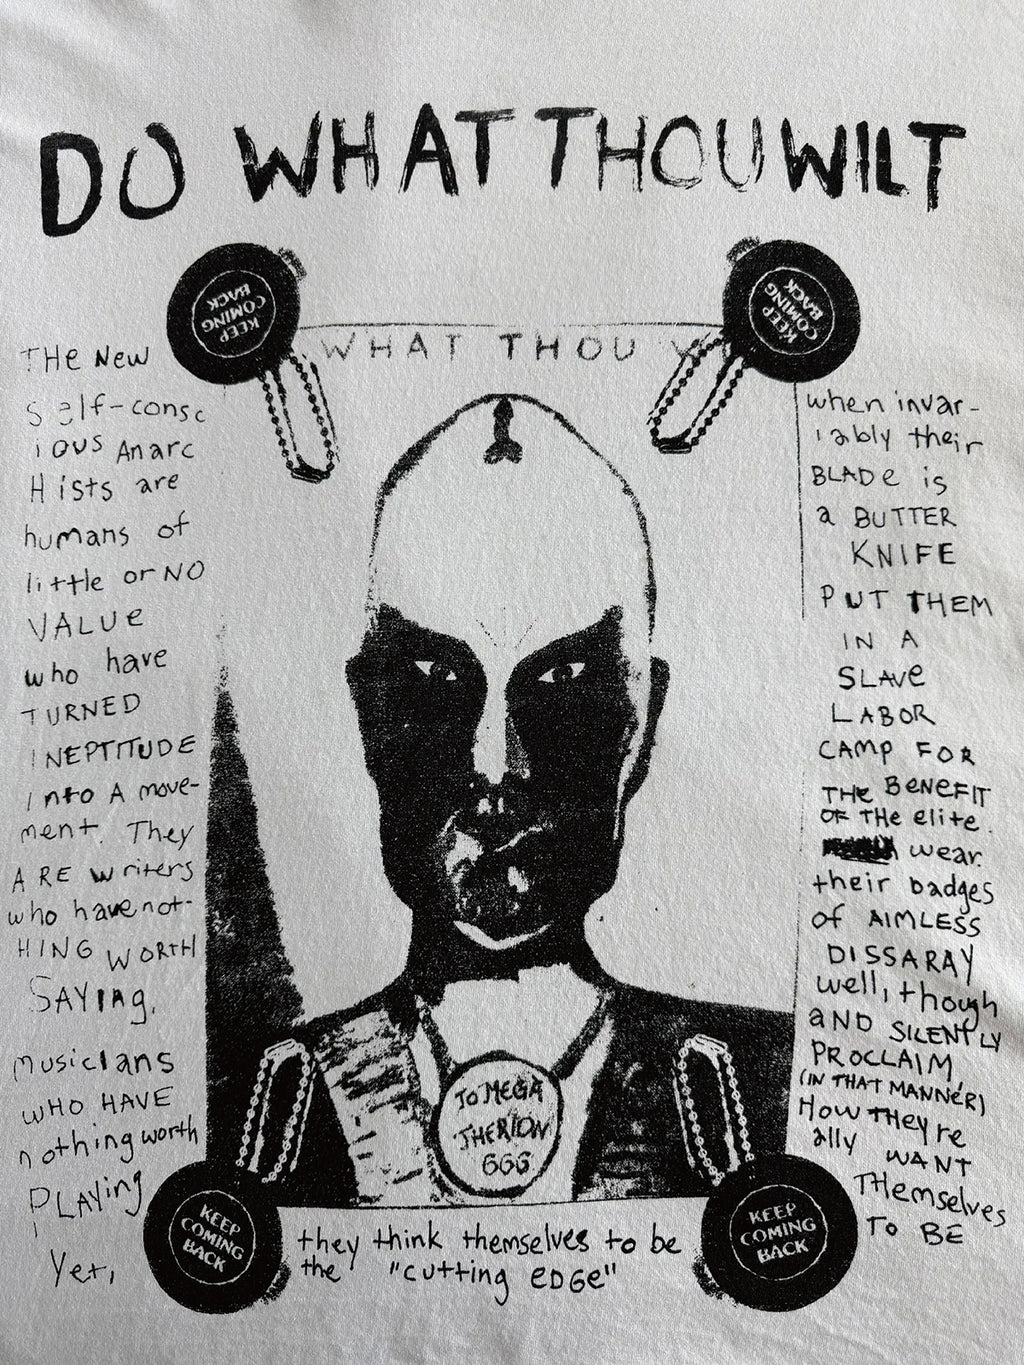 DO WHAT THOU WILT
KEEP
COMING
BACK
KEEP
COMING
BACK
WHAT THOU W
THe New
Self-consc
ious Anarc
Hists are
humans of
little or NO
VALUe
who have
TURNED
INEPTITUDE
Into A move-
ment. They
ARE writers
who have not-
HING WORTH
SAYIng.
musicIans
WHO HAVE
nothing worth
PLAYing
Yet,
they think themselves to be
the "cutting EDGe"
when invar-
iably their
BLADe is
a BUTTER
KNIFE
PUT THEM
IN A
SLAVe
LABOR
CAMP FOR
THe BeNeFIT
OF THe elite.
wear
their badges
of AIMLESS
DISSARAY
well, though
aND SILENTLY
PROCLAIM,
(IN THAT MANNER)
How THey're
ally WANT
THemselves
TO BE
TO MEGA
THERION
666
KEEP
COMING
BACK
KEEP
COMING
BACK